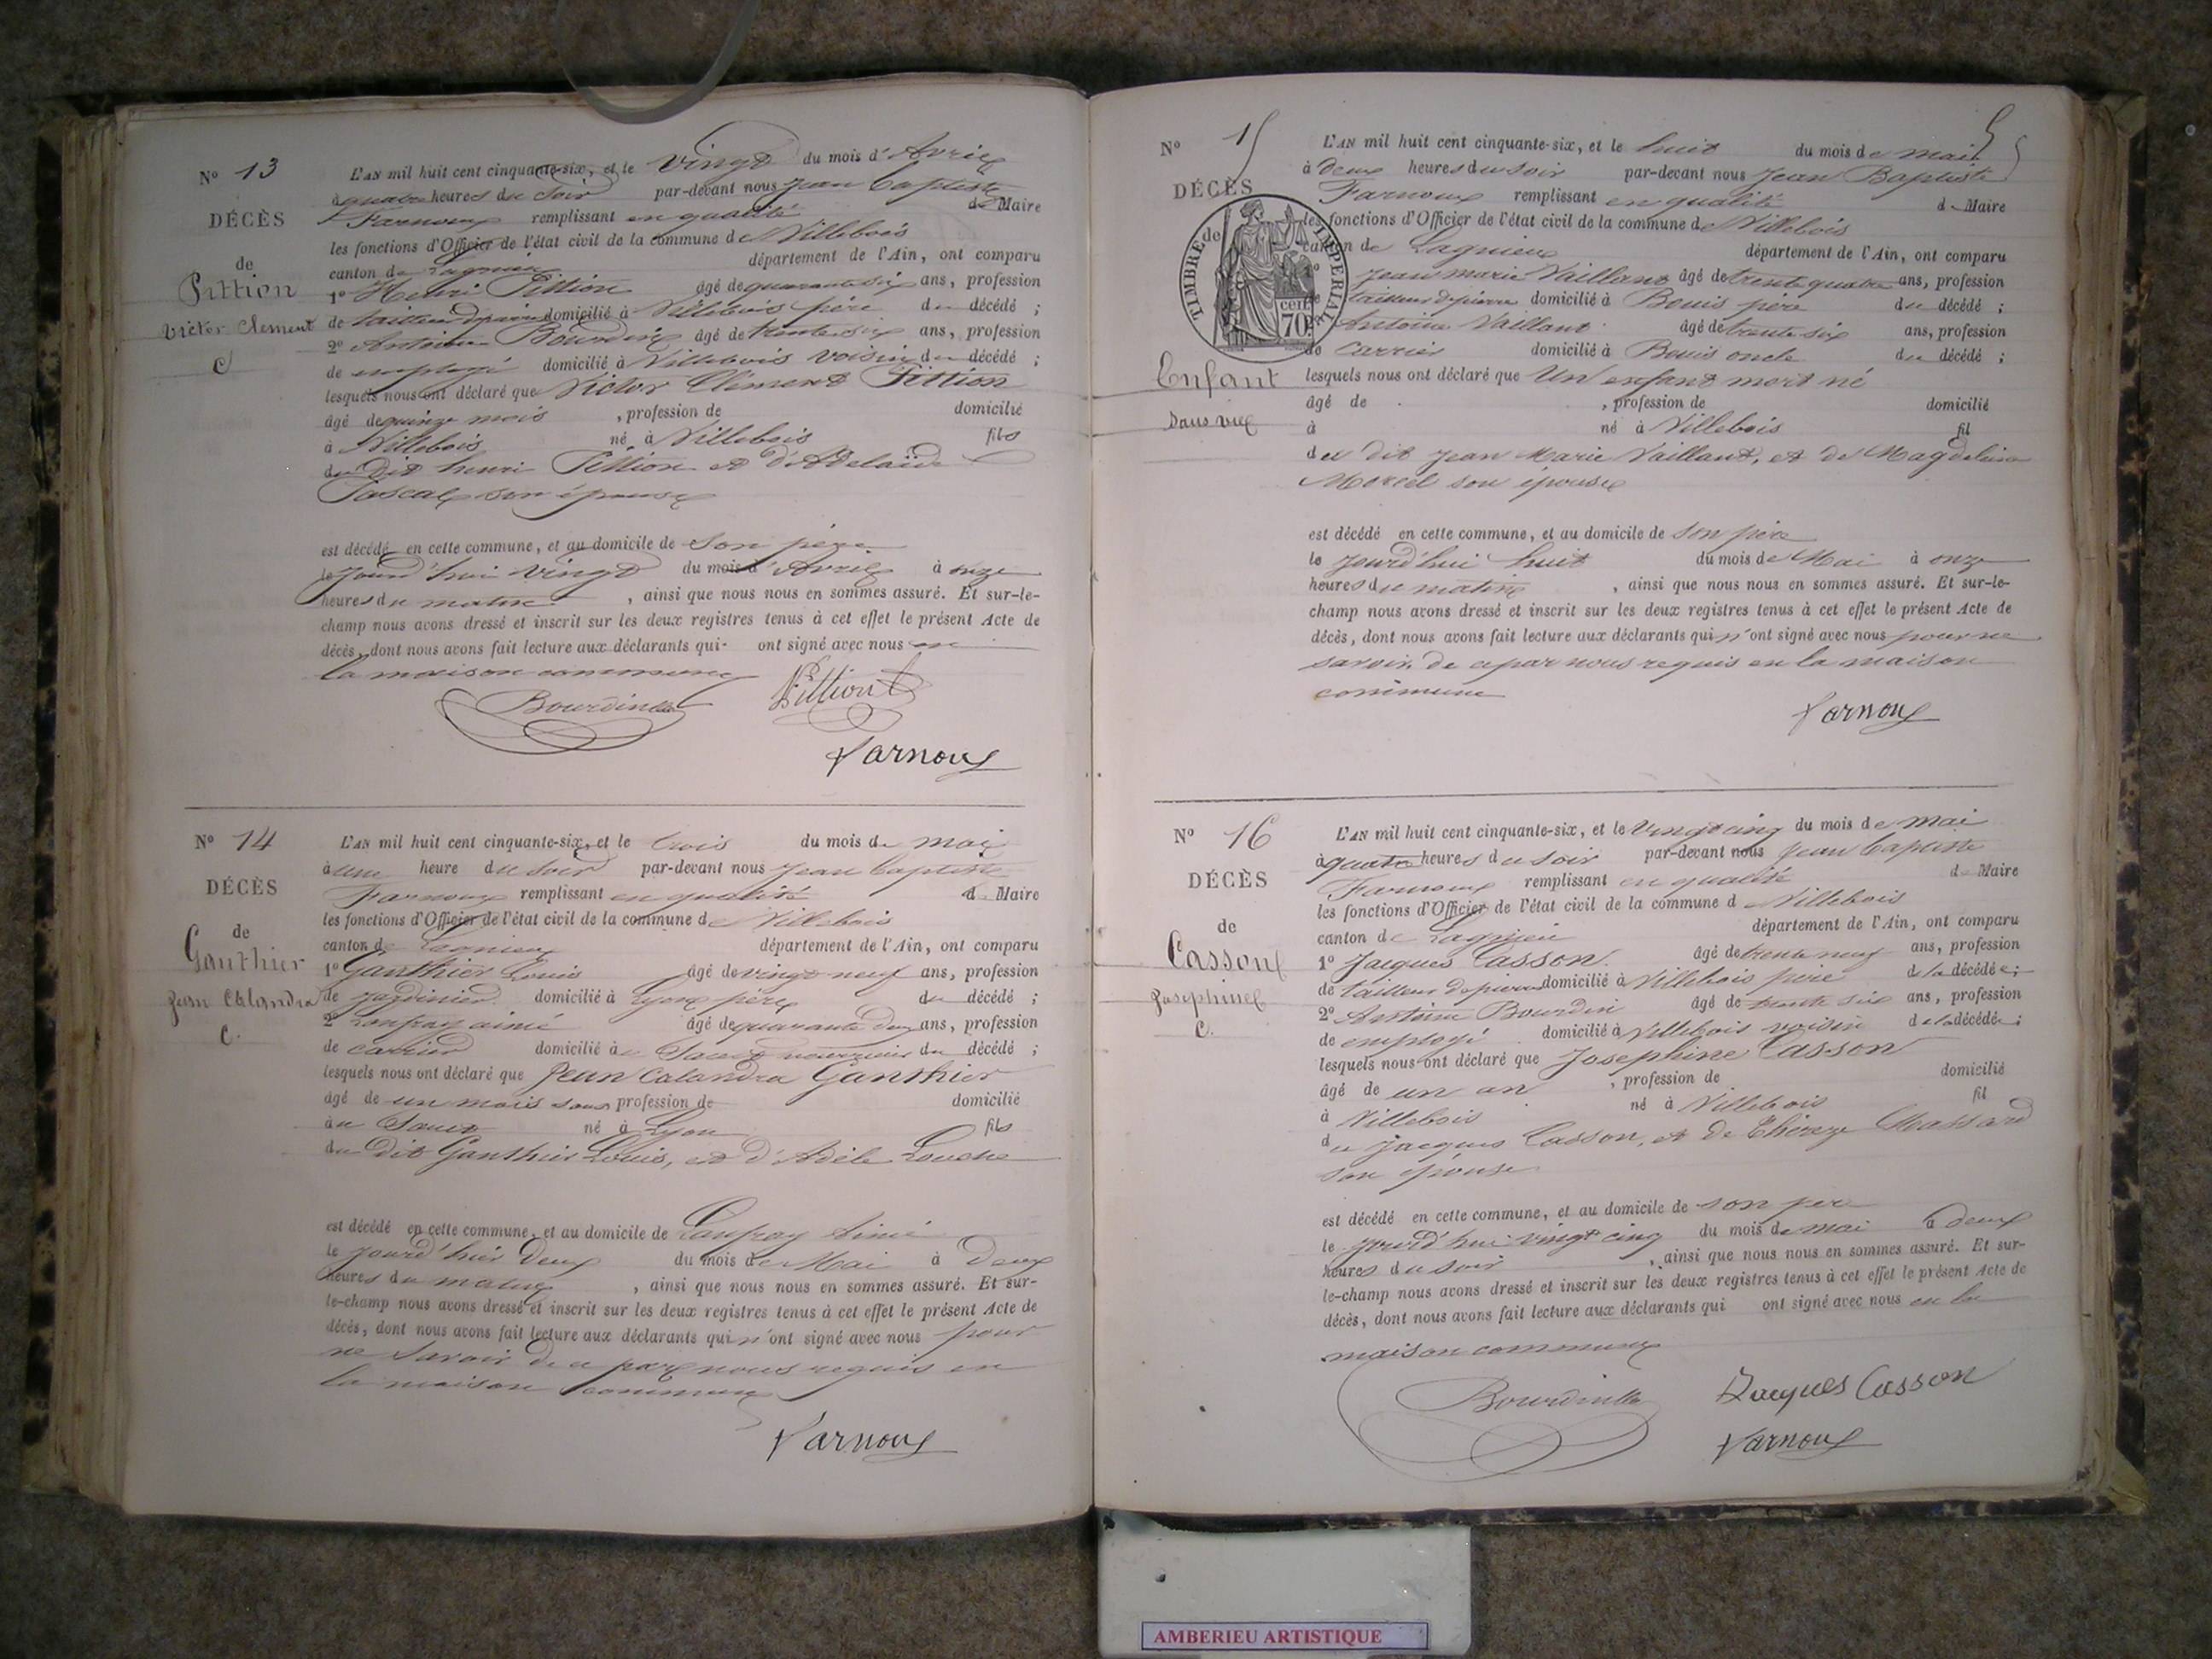 Nº 13
DÉCÈS
de
Pittion
Victor Clement
C
L'AN mil huit cent cinquante-six, et le vingt du mois d'Avril
à quatre heures du soir par-devant nous Jean Baptiste
Farnoux remplissant en qualité de Maire
les fonctions d'Officier de l'état civil de la commune de Villebois
canton de Lagnieu département de l'Ain, ont comparu
1º Henri Pittion âgé de quarante six ans, profession
de tailleur de pierre domicilié à Villebois père du décédé ;
2º Antoine Bourdin âgé de trente six ans, profession
de employé domicilié à Villebois voisin du décédé ;
lesquels nous ont déclaré que Victor Clément Pittion
âgé de quinze mois , profession de domicilié
à Villebois né à Villebois fils
du dit henri Pittion et d'Adelaide
Pascal son épouse
est décédé en cette commune, et au domicile de son père
le jourd'hui vingt du mois d'Avril à onze
heures du matin , ainsi que nous nous en sommes assuré. Et sur-le-
champ nous avons dressé et inscrit sur les deux registres tenus à cet effet le présent Acte de
décès, dont nous avons fait lecture aux déclarants qui ont signé avec nous en
la maison commune
Bourdin Pittion
Farnoux
Nº 14
DÉCÈS
de
Gauthier
Jean Calandra
C.
L'AN mil huit cent cinquante-six, et le trois du mois de mai
à une heure du soir par-devant nous Jean Baptiste
Farnoux remplissant en qualité de Maire
les fonctions d'Officier de l'état civil de la commune de Villebois
canton de Lagnieu département de l'Ain, ont comparu
1º Gauthier Louis âgé de vingt neuf ans, profession
de jardinier domicilié à Lyon père du décédé ;
2º Lanfray aimé âgé de quarante deux ans, profession
de carrier domicilié au Sault nourricier du décédé ;
lesquels nous ont déclaré que Jean Calandra Gauthier
âgé de un mois sans profession de domicilié
au Sault né à Lyon fils
du dit Gauthier Louis, et d'Adèle Louche
est décédé en cette commune, et au domicile de Lanfray Aimé
le jourd'hier deux du mois de Mai à deux
heures du matin , ainsi que nous nous en sommes assuré. Et sur-
le-champ nous avons dressé et inscrit sur les deux registres tenus à cet effet le présent Acte de
décès, dont nous avons fait lecture aux déclarants qui n'ont signé avec nous pour
ne savoir de ce par nous requis en
la maison commune
Farnoux
5
Nº 15
DÉCÈS
de
TIMBRE IMPERIAL
70 cent
Enfant
sans vie
L'AN mil huit cent cinquante-six, et le huit du mois de mai
à deux heures du soir par-devant nous Jean Baptiste
Farnoux remplissant en qualité de Maire
les fonctions d'Officier de l'état civil de la commune de Villebois
canton de Lagnieu département de l'Ain, ont comparu
Jean marie Vaillant âgé de trente quatre ans, profession
tailleur de pierre domicilié à Bouis père du décédé ;
Antoine Vaillant âgé de trente six ans, profession
de carrier domicilié à Bouis oncle du décédé ;
lesquels nous ont déclaré que Un enfant mort né
âgé de , profession de domicilié
à né à Villebois fil
du dit Jean Marie Vaillant, et de Magdeleine
Morcel son épouse
est décédé en cette commune, et au domicile de son père
le jourd'hui huit du mois de Mai à onze
heures du matin , ainsi que nous nous en sommes assuré. Et sur-le-
champ nous avons dressé et inscrit sur les deux registres tenus à cet effet le présent Acte de
décès, dont nous avons fait lecture aux déclarants qui n'ont signé avec nous pour ne
savoir de ce par nous requis en la maison
commune
Farnoux
Nº 16
DÉCÈS
de
Casson
Josephine
C.
L'AN mil huit cent cinquante-six, et le vingt cinq du mois de mai
à quatre heures du soir par-devant nous Jean Baptiste
Farnoux remplissant en qualité de Maire
les fonctions d'Officier de l'état civil de la commune de Villebois
canton de Lagnieu département de l'Ain, ont comparu
1º Jacques Casson âgé de trente neuf ans, profession
de tailleur de pierre domicilié à Villebois père de la décédée ;
2º Antoine Bourdin âgé de trente six ans, profession
de employé domicilié à Villebois voisin de la décédée ;
lesquels nous ont déclaré que Josephine Casson
âgé de un an , profession de domicilié
à Villebois né à Villebois fil
du Jacques Casson, et de Thérèze Massard
son épouse
est décédé en cette commune, et au domicile de son per
le jourd'hui vingt cinq du mois de mai à deux
heures du soir , ainsi que nous nous en sommes assuré. Et sur-
le-champ nous avons dressé et inscrit sur les deux registres tenus à cet effet le présent Acte de
décès, dont nous avons fait lecture aux déclarants qui ont signé avec nous en la
maison commune
Bourdin Jacques Casson
Farnoux
AMBERIEU ARTISTIQUE